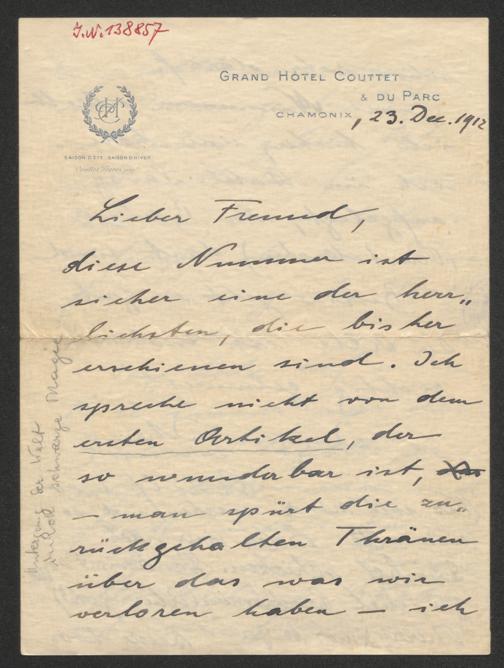 J.N. 138857
GRAND HÔTEL COUTTET
& DU PARC
CHAMONIX, 23. Dec. 1912
SAISON D'ÉTÉ SAISON D'HIVER
Lieber Freund,
diese Nummer ist
sicher eine der herr„
lichsten, die bisher
erschienen sind. Ich
spreche nicht von dem
ersten Artikel, der
so wunderbar ist,
– man spürt die zu„
rückgehalten Thränen
über das was wir
verloren haben – ich
Untergang der Welt
durch schwarze Magie